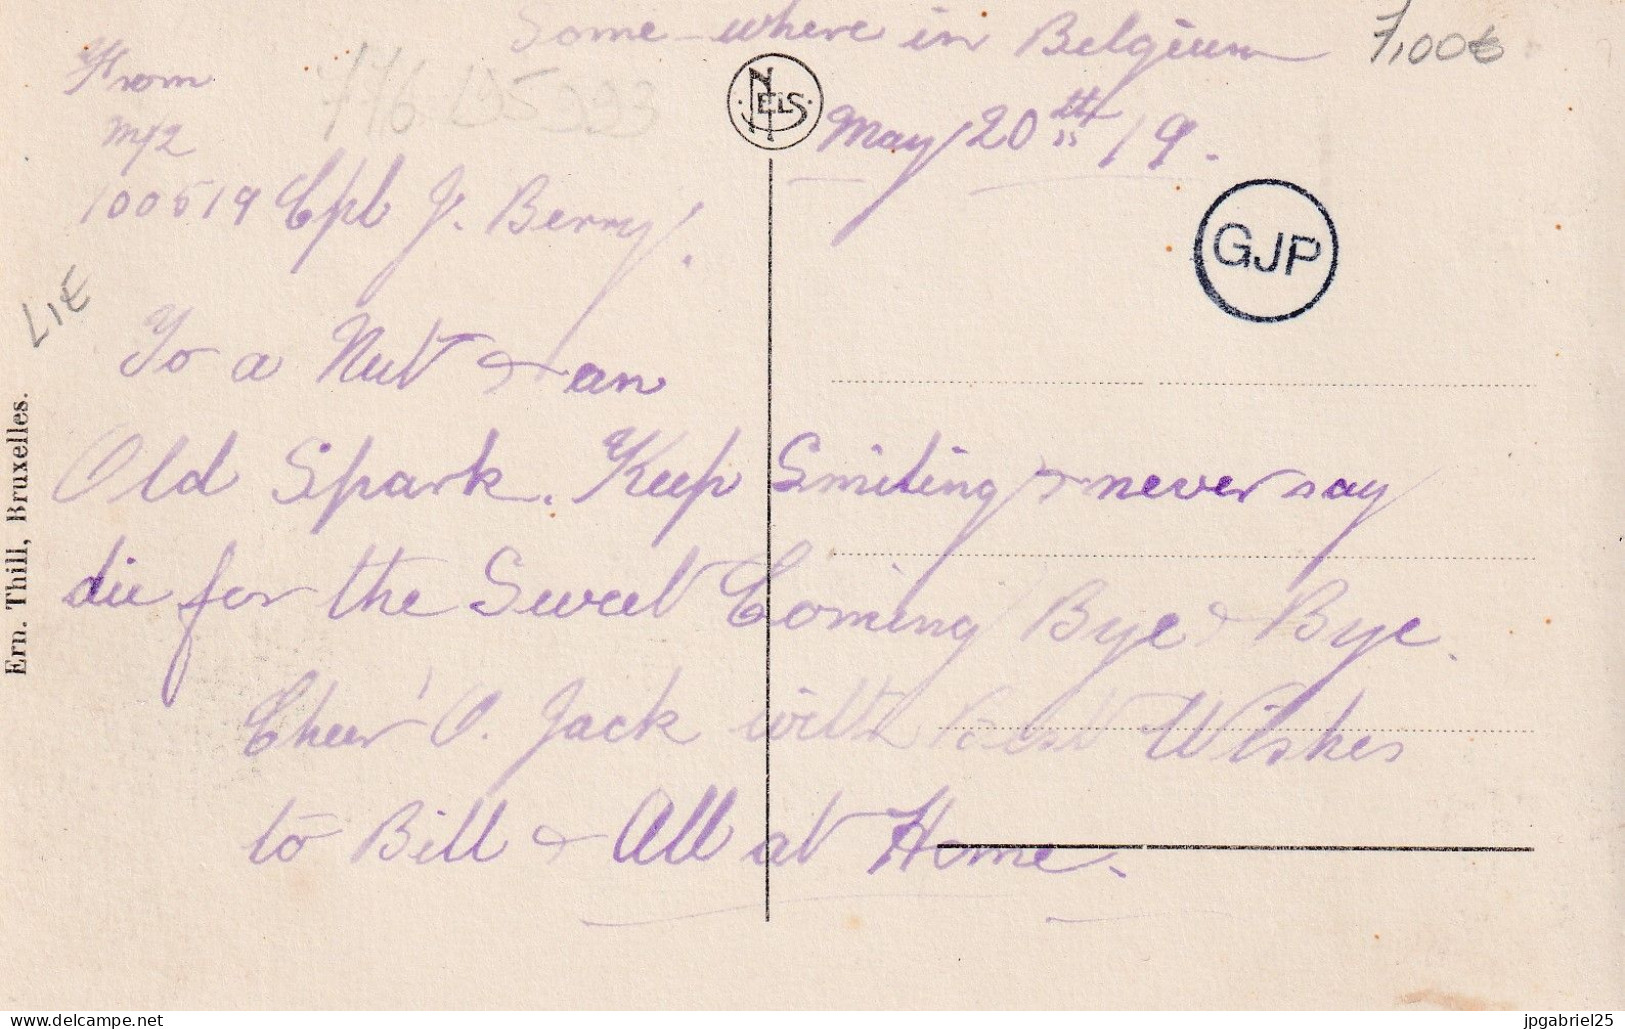 Some-where in Belgium
7,00€
May 20th 19.
From
M/2
100519 Cpl J. Berry.
NELS
GJP
LIE
To a Nut & an
Old Spark. Keep Smiling & never say
die for the Sweet Coming Bye & Bye.
Cheer' O. Jack with Best Wishes
to Bill & All at Home.
Ern. Thill, Bruxelles.
https://www.delcampe.net
jpgabriel25